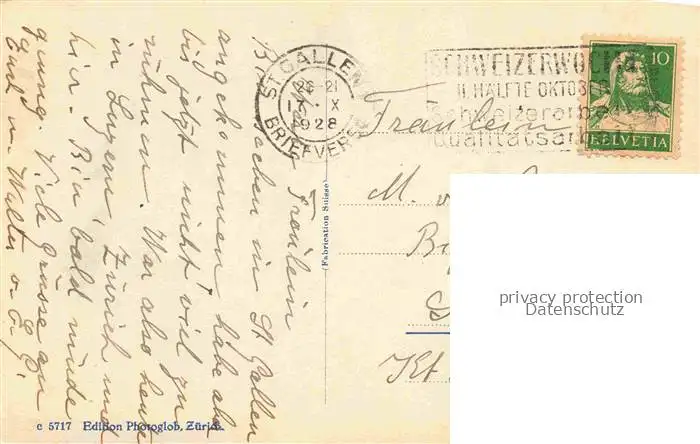 Fräulein
Bin soeben in St. Gallen
angekommen, habe aber
bis jetzt nicht viel zu
rühmen. War also heute
in Luzern, Zürich und
hier. Bin bald müde
genug. Viele Grüsse an
Walter
ST. GALLEN
20-21
17. X
1928
BRIEFVERS
SCHWEIZERWOCHE
II. HÄLFTE OKTOBER
Schweizerarbeit
Qualitätsarbeit
10
HELVETIA
Fräulein
M. v.
Kt.
(Fabrication Suisse)
c 5717 Edition Photoglob, Zürich.
privacy protection
Datenschutz